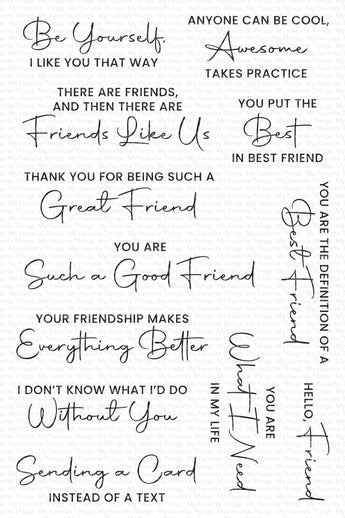 Be Yourself.
I LIKE YOU THAT WAY
ANYONE CAN BE COOL,
Awesome
TAKES PRACTICE
THERE ARE FRIENDS,
AND THEN THERE ARE
Friends Like Us
YOU PUT THE
Best
IN BEST FRIEND
THANK YOU FOR BEING SUCH A
Great Friend
YOU ARE THE DEFINITION OF A
Best Friend
YOU ARE
Such a Good Friend
YOUR FRIENDSHIP MAKES
Everything Better
I DON'T KNOW WHAT I'D DO
Without You
YOU ARE
What I Need
IN MY LIFE
HELLO,
Friend
Sending a Card
INSTEAD OF A TEXT